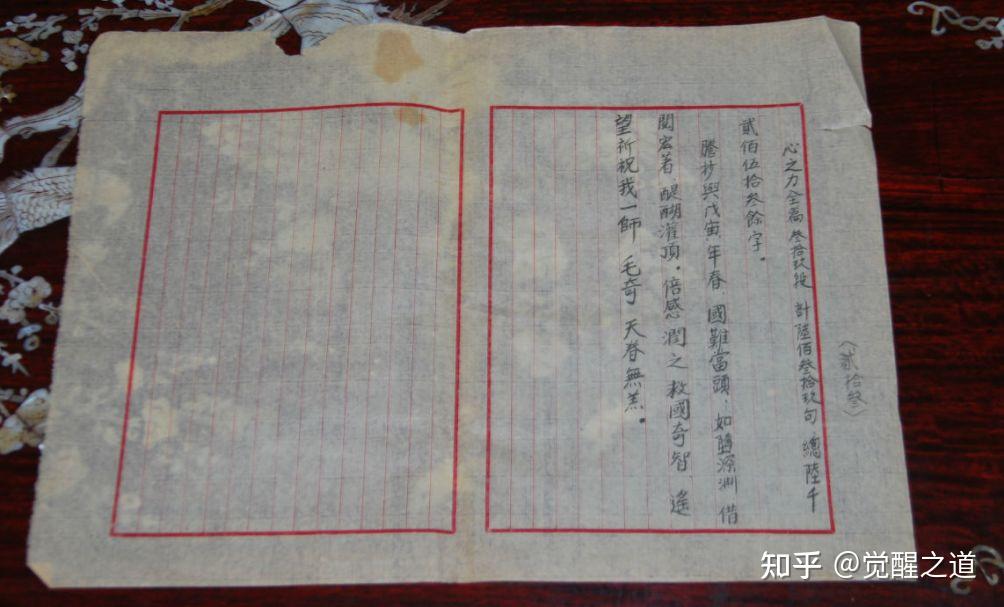 〈貳拾叄〉
心之力全篇 叄拾玖段 計陸佰叄拾玖句 總陸千
貳佰伍拾叄餘字。
謄抄與戊寅年春 國難當頭，如墮深淵 借
閱宏著，醍醐灌頂。倍感 潤之救國奇智，遙
望祈祝我一師 毛奇 天眷無恙。
知乎 @觉醒之道